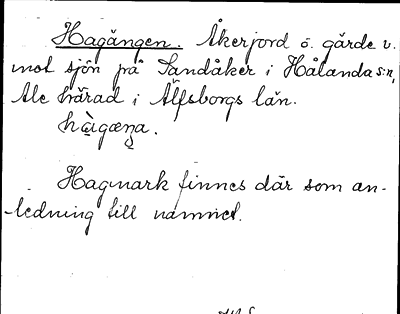 Hagången. Åkerjord ö. gärde v.
mot sjön på Sandåker i Hålanda s:n,
Ale härad i Älfsborgs län.
Hagmark finnes där som an-
ledning till namnet.